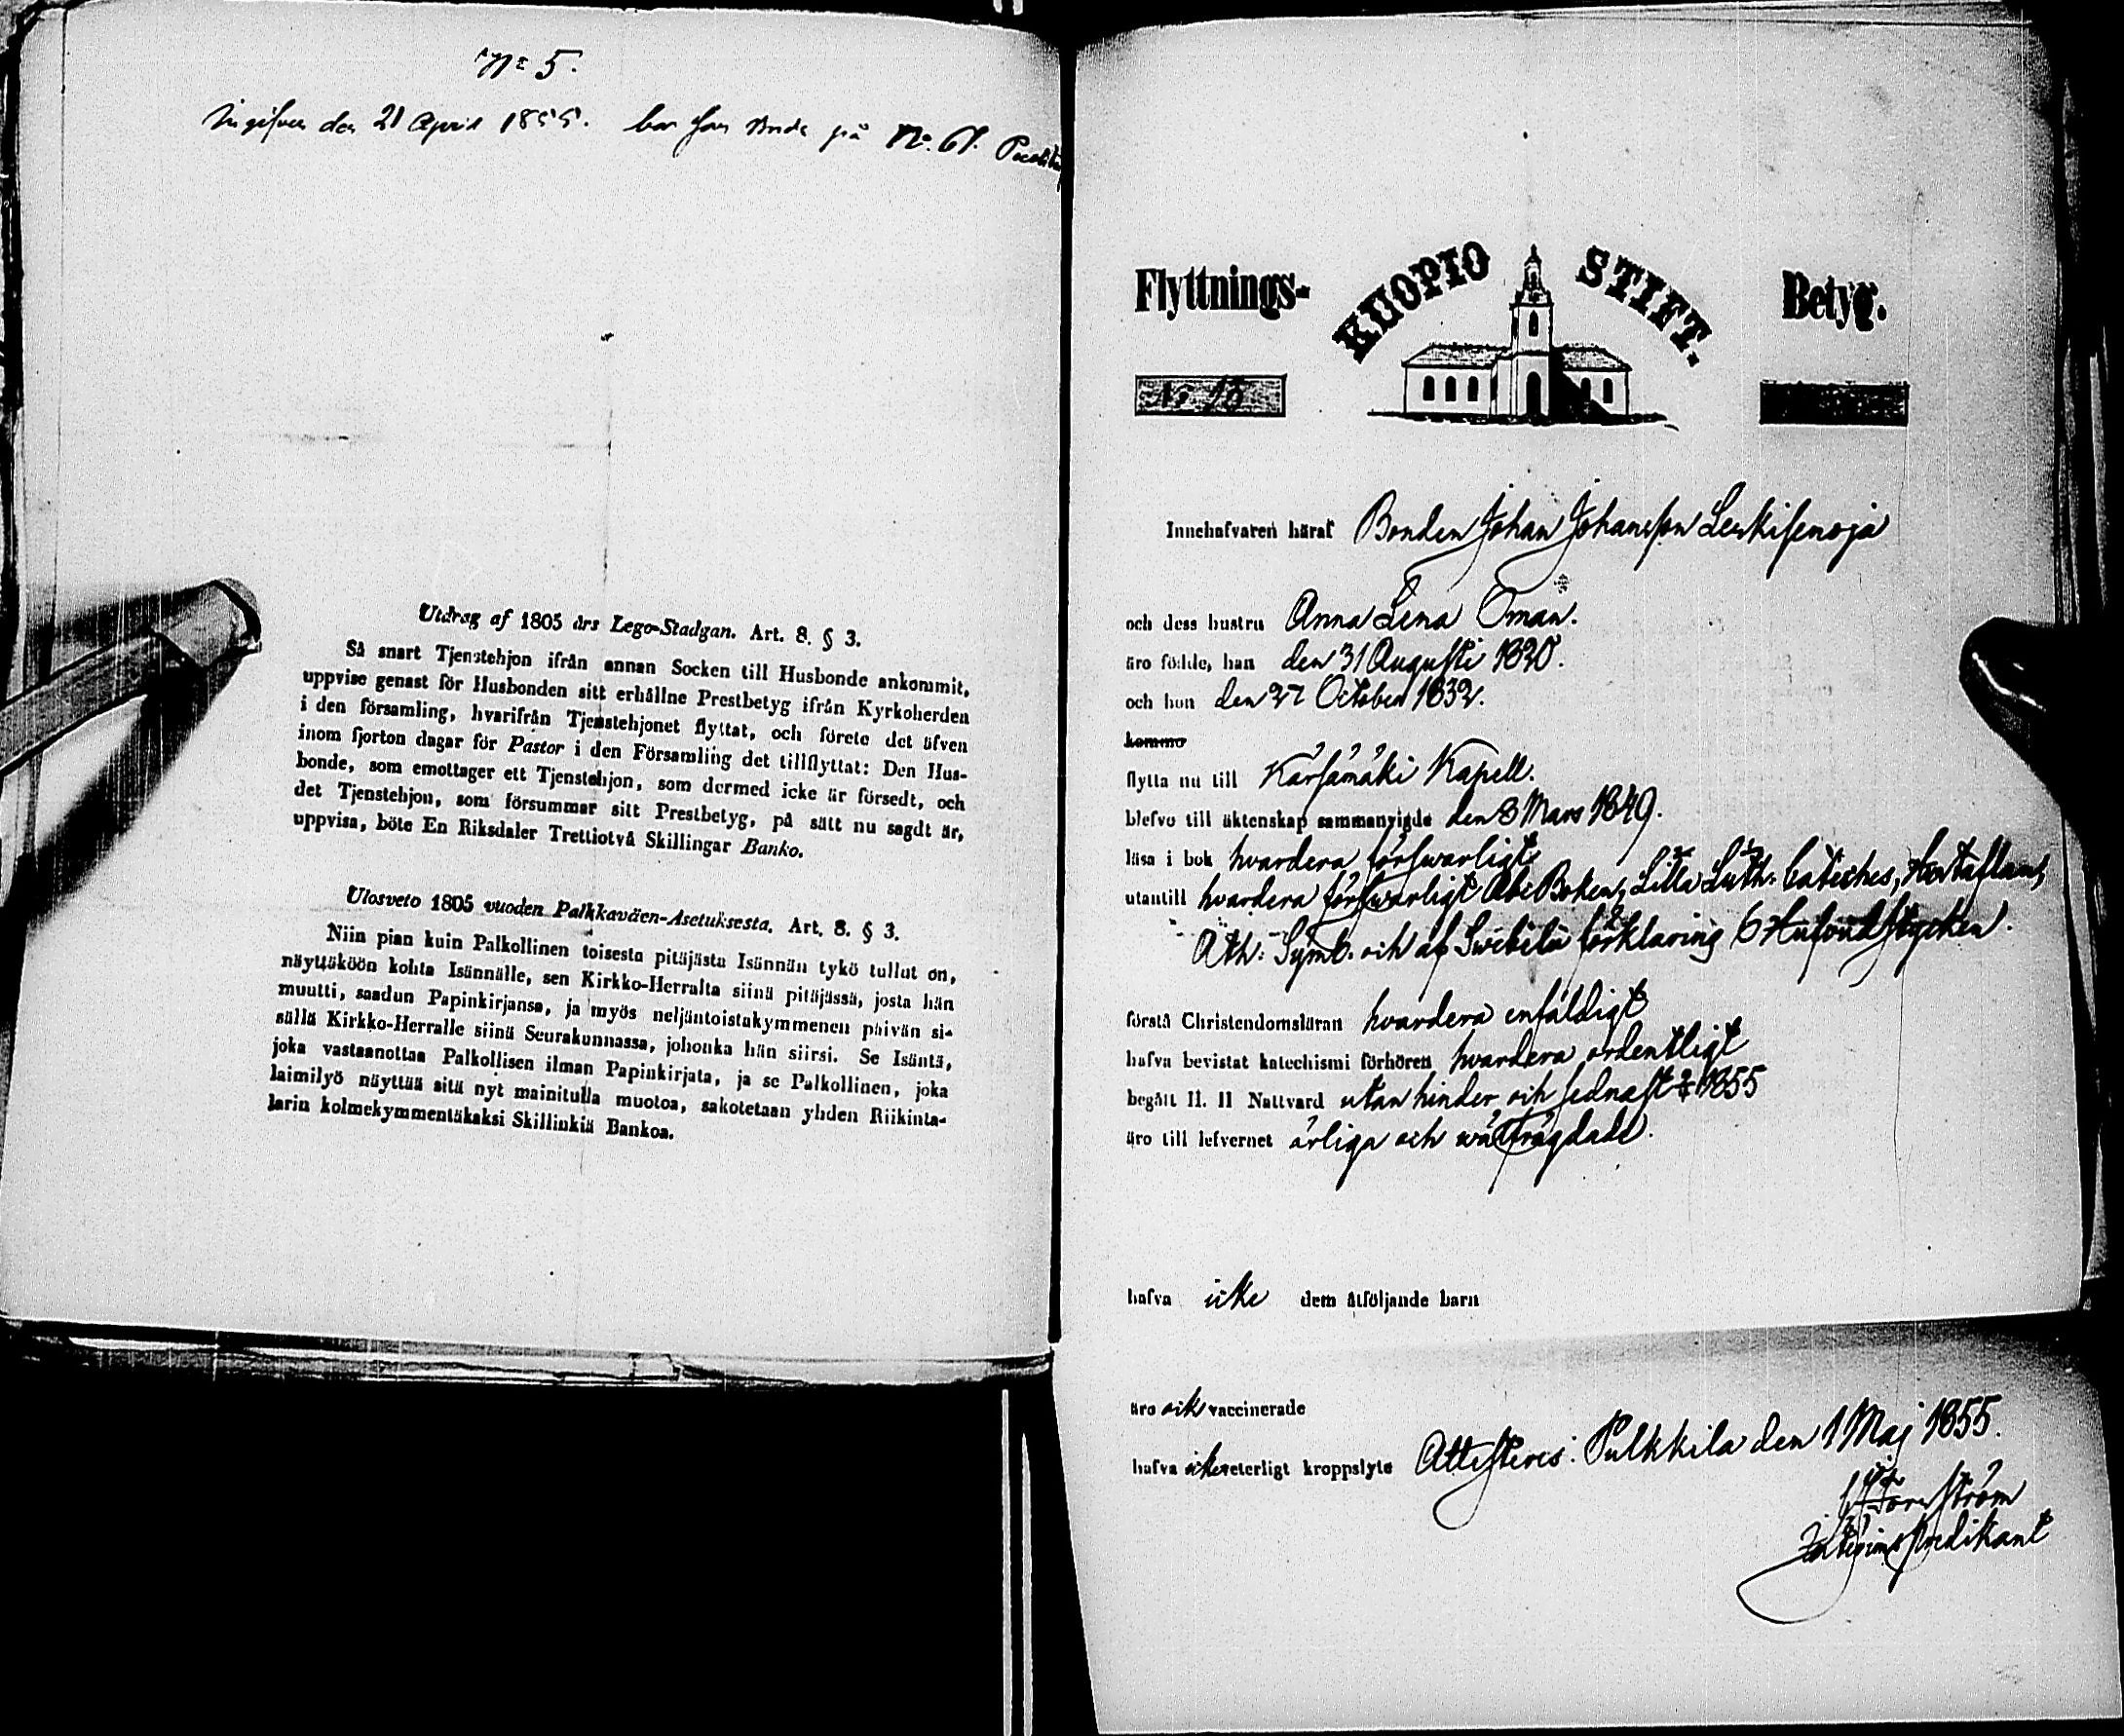 N:o 5.
Ingifven den 21 April 1855. på No. 61.
Utdrag af 1805 års Lego-Stadgan. Art. 8. § 3.
Så snart Tjenstehjon ifrån annan Socken till Husbonde ankommit,
uppvise genast för Husbonden sitt erhållne Prestbetyg ifrån Kyrkoherden
i den församling, hvarifrån Tjenstehjonet flyttat, och förete det äfven
inom fjorton dagar för Pastor i den Församling det tillflyttat: Den Hus-
bonde, som emottager ett Tjenstehjon, som dermed icke är försedt, och
det Tjenstehjon, som försummar sitt Prestbetyg, på sätt nu sagdt är,
uppvisa, böte En Riksdaler Trettiotvå Skillingar Banko.
Ulosveto 1805 vuoden Palkkaväen-Asetuksesta. Art. 8. § 3.
Niin pian kuin Palkollinen toisesta pitäjästä Isännän tykö tullut on,
näyttäköön kohta Isännälle, sen Kirkko-Herralta siinä pitäjässä, josta hän
muutti, saadun Papinkirjansa, ja myös neljäntoistakymmenen päivän si-
sällä Kirkko-Herralle siinä Seurakunnassa, johonka hän siirsi. Se Isäntä,
joka vastaanottaa Palkollisen ilman Papinkirjata, ja se Palkollinen, joka
laimilyö näyttää sitä nyt mainitulla muotoa, sakotetaan yhden Riikinta-
larin kolmekymmentäkaksi Skillinkiä Bankoa.
Flyttnings- KUOPIO STIFT. Betyg.
No 18
Innehafvaren häraf Bonden Johan Johansson Leskisenoja
och dess hustru Anna Lena Öman.
äro födde, han den 31 Augusti 1820.
och hon den 27 October 1832.
komma
flytta nu till Kärsämäki Kapell.
blefvo till äktenskap sammanvigde den 8 Mars 1849.
läsa i bok hvardera försvarligt
utantill hvardera försvarligt Abc Boken, Lilla Luth. Cateches, Hustaflan,
Ath. Symb. och af Svebelii förklaring 6 Hufvudstycken.
förstå Christendomsläran hvardera enfäldigt
hafva bevistat katechismi förhören hvardera ordentligt
begått H. H Nattvard utan hinder och sednast 1855
äro till lefvernet ärliga och välfrägdade.
hafva icke dem åtföljande barn
äro ock vaccinerade
hafva icke veterligt kroppslyte Attesteres: Pulkkila den 1 Maj 1855.
Forsström
Predikant